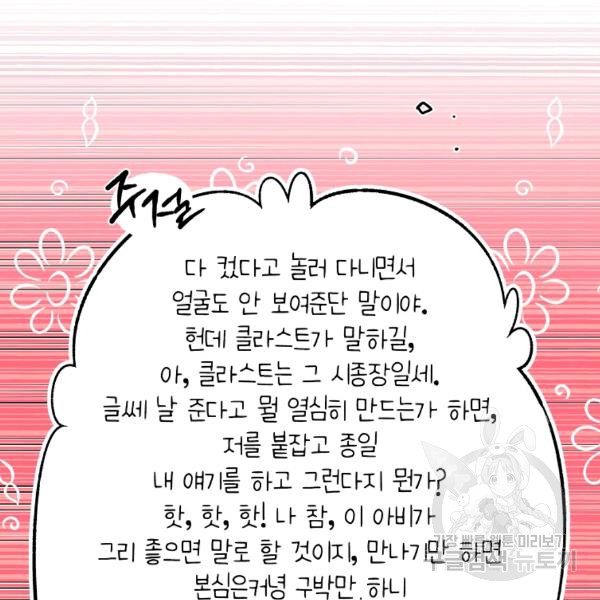 주절
다 컸다고 놀러 다니면서
얼굴도 안 보여준단 말이야.
헌데 클라스트가 말하길,
아, 클라스트는 그 시종장일세.
글쎄 날 준다고 뭘 열심히 만드는가 하면,
저를 붙잡고 종일
내 얘기를 하고 그런다지 뭔가?
핫, 핫, 핫! 나 참, 이 아비가
그리 좋으면 말로 할 것이지, 만나기만 하면
본심은커녕 구박만 하니
가장 빠른 웹툰 미리보기
뉴토끼